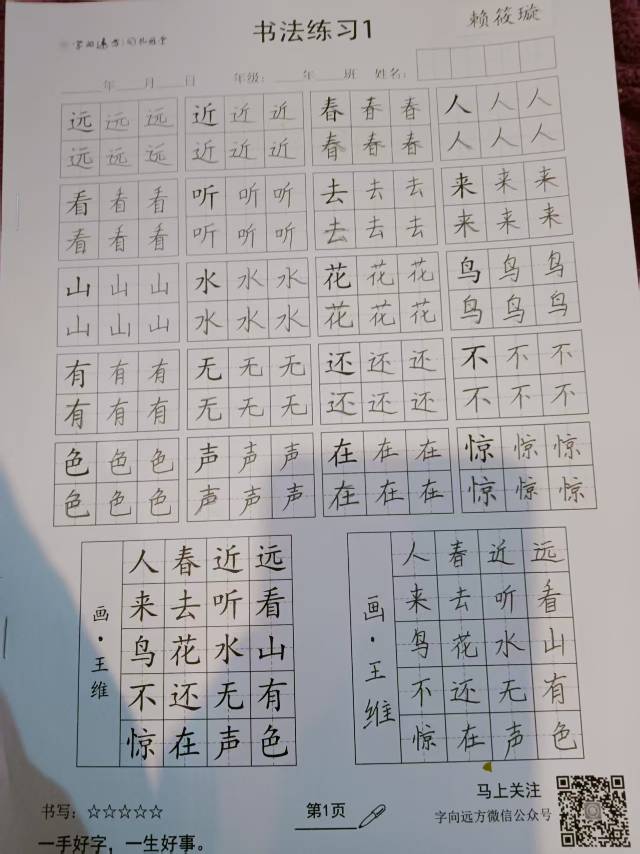 书法练习1
赖筱璇
字向远方
____年____月____日 年级：____年____班 姓名：
远远远 近近近 春春春 人人人
远远远 近近近 春春春 人人人
看看看 听听听 去去去 来来来
看看看 听听听 去去去 来来来
山山山 水水水 花花花 鸟鸟鸟
山山山 水水水 花花花 鸟鸟鸟
有有有 无无无 还还还 不不不
有有有 无无无 还还还 不不不
色色色 声声声 在在在 惊惊惊
色色色 声声声 在在在 惊惊惊
远看山有色
近听水无声
春去花还在
人来鸟不惊
画·王维
远看山有色
近听水无声
春去花还在
人来鸟不惊
画·王维
书写：☆☆☆☆☆
一手好字，一生好事。
第1页
马上关注
字向远方微信公众号